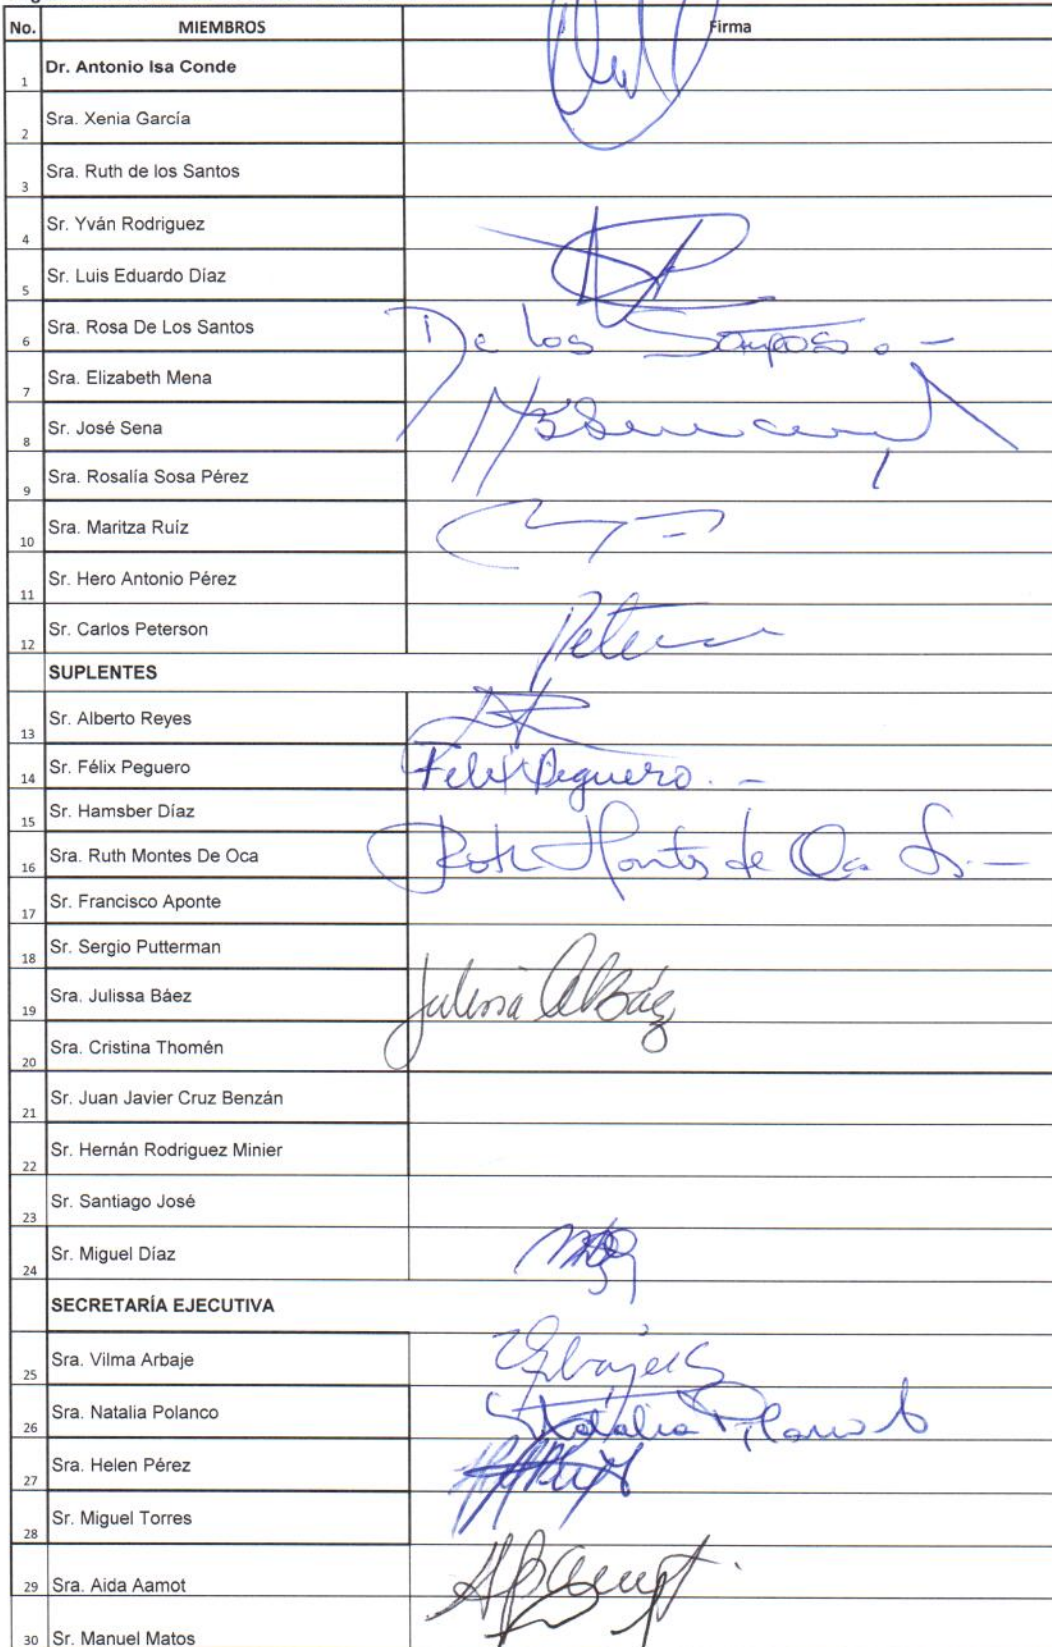 No. MIEMBROS Firma
1 Dr. Antonio Isa Conde
2 Sra. Xenia García
3 Sra. Ruth de los Santos
4 Sr. Yván Rodriguez
5 Sr. Luis Eduardo Díaz
6 Sra. Rosa De Los Santos De los Santos
7 Sra. Elizabeth Mena
8 Sr. José Sena
9 Sra. Rosalía Sosa Pérez
10 Sra. Maritza Ruíz
11 Sr. Hero Antonio Pérez
12 Sr. Carlos Peterson
SUPLENTES
13 Sr. Alberto Reyes
14 Sr. Félix Peguero Felix Peguero.-
15 Sr. Hamsber Díaz
16 Sra. Ruth Montes De Oca Ruth Montes de Oca
17 Sr. Francisco Aponte
18 Sr. Sergio Putterman
19 Sra. Julissa Báez Julissa Báez
20 Sra. Cristina Thomén
21 Sr. Juan Javier Cruz Benzán
22 Sr. Hernán Rodriguez Minier
23 Sr. Santiago José
24 Sr. Miguel Díaz
SECRETARÍA EJECUTIVA
25 Sra. Vilma Arbaje
26 Sra. Natalia Polanco Natalia Polanco
27 Sra. Helen Pérez
28 Sr. Miguel Torres
29 Sra. Aida Aamot
30 Sr. Manuel Matos